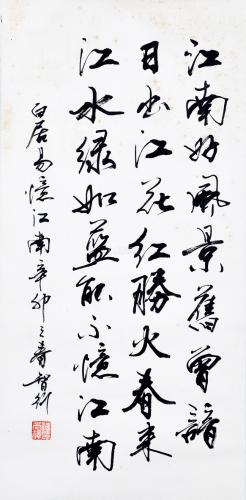 江南好風景舊曾諳
日出江花紅勝火春来
江水綠如藍能不憶江南
白居易憶江南辛卯之春智衍